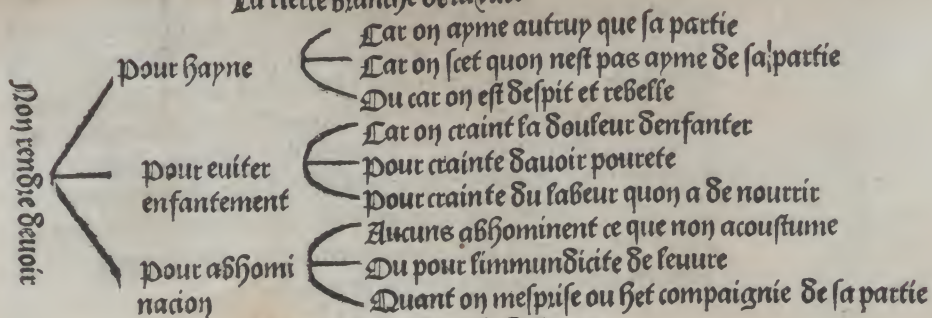 Non rendre deuoir
Pour hayne
Car on ayme autruy que sa partie
Car on scet quon nest pas ayme de sa partie
Ou car on est despit et rebelle
Pour euiter
enfantement
Car on craint la douleur denfanter
Pour crainte dauoir pourete
Pour crainte du labeur quon a de nourrir
Pour abhomi
nacion
Aucuns abhominent ce que non acoustume
Ou pour limmundicite de leuure
Quant on mesprise ou het compaignie de sa partie